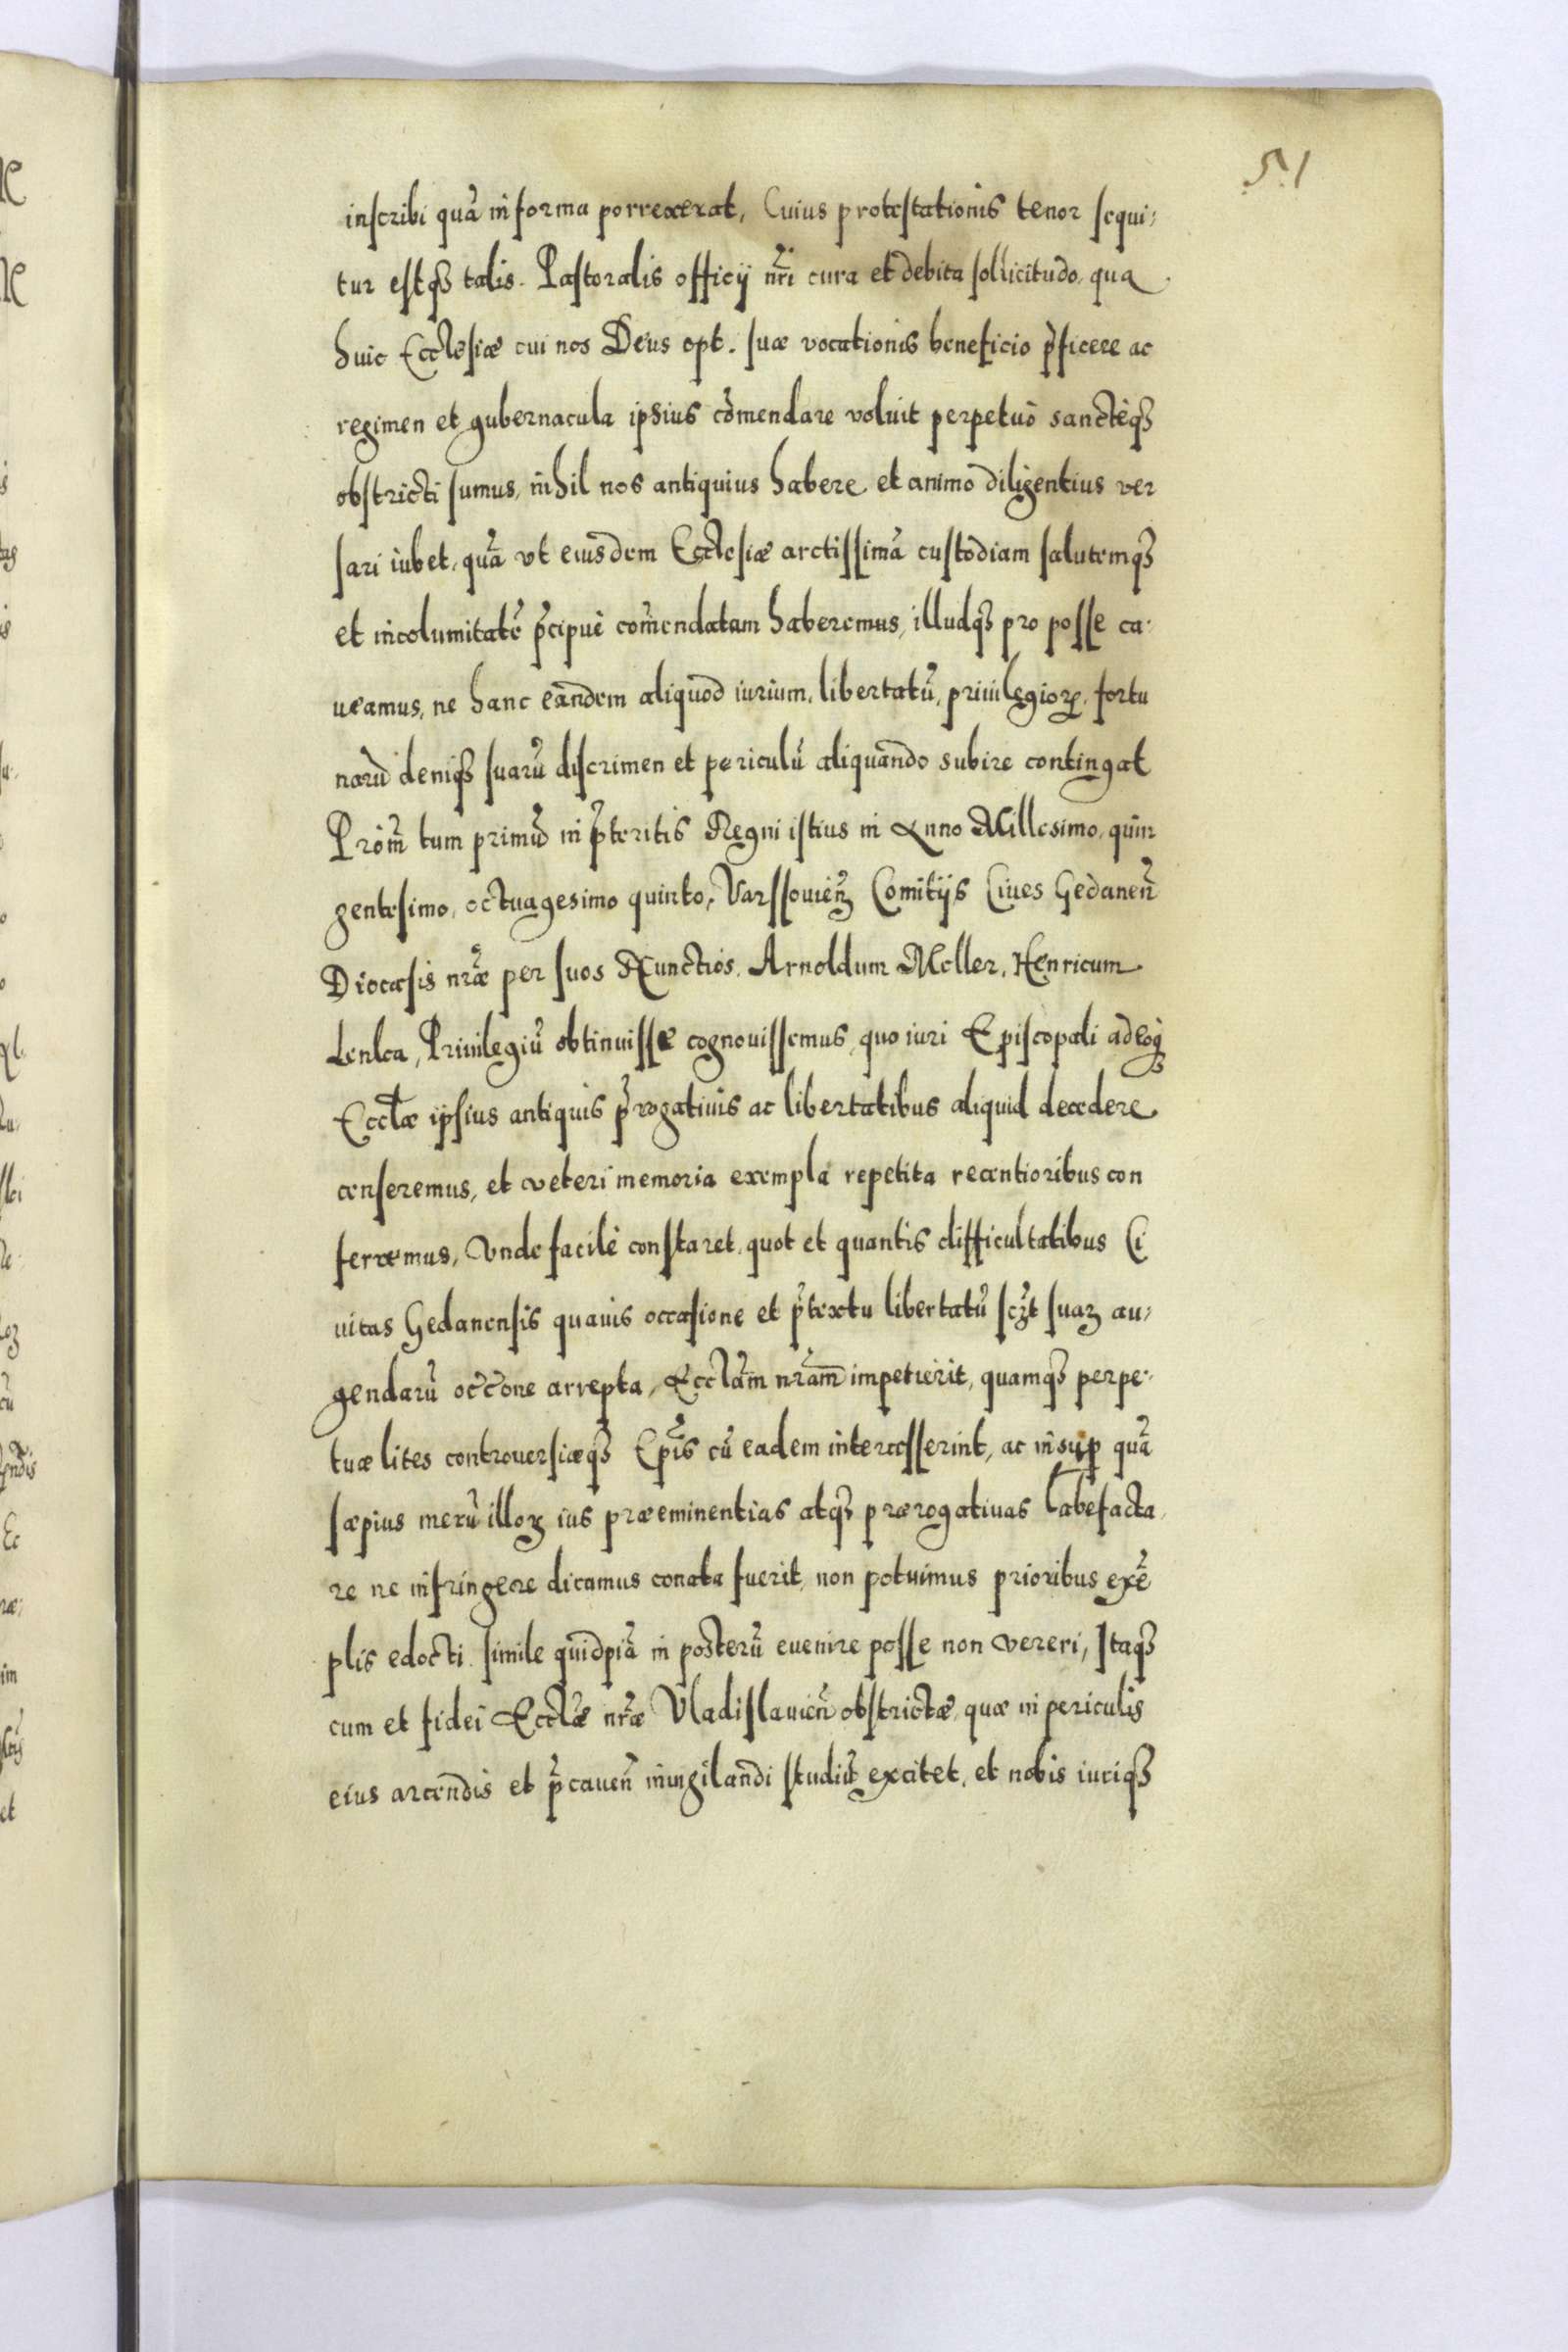 51
inscribi quã in forma porrexerat, Cuius protestationis tenor sequi,
tur estqȝ talis. Pastoralis officij nr̃i cura et debita sollicitudo, qua
huic Ecclesiæ cui nos Deus opt. suæ vocationis beneficio p̃ficere ac
regimen et gubernacula ipsius cõmendare voluit perpetuò sanctèqȝ
obstricti sumus, nihil nos antiquius habere et animo diligentius ver
sari iubet, quã vt eiusdem Ecclesiæ arctissimã custodiam salutemqȝ
et incolumitatẽ p̃cipuè com̃endatam haberemus, illudqȝ pro posse ca-
ueamus, ne hanc eandem aliquod iurium, libertatũ, priuilegioꝝ, fortu
narũ deniqȝ suarũ discrimen et periculũ aliquando subire contingat
Proĩn tum primũ in p̃teritis Regni istius in Anno Millesimo, quin
gentesimo, octuagesimo quinto, Varssouieñ Comitijs Ciues Gedaneñ
Diocæsis nr̃æ per suos Nunctios, Arnoldum Moller, Henricum
Lenlca, Priuilegiũ obtinuisse cognouissemus, quo iuri Episcopali adeoqȝ
Eccl̃æ ipsius antiquis p̃rogatiuis ac libertatibus aliquid decedere
censeremus, et veteri memoria exempla repetita recentioribus con
ferremus, Vnde facilè constaret, quot et quantis difficultatibus Ci
uitas Gedanensis quauis occasione et p̃textu libertatũ sc̃et suaꝝ au,
gendarũ occ̃one arrepta, Eccl̃am nr̃am impetierit, quamqȝ perpe-
tuæ lites controuersiæqȝ Ep̃is cũ eadem intercesserint, ac insuꝑ quã
sæpius merũ illoꝝ ius præeminentias atqȝ prærogatiuas labefacta
re ne infringere dicamus conata fuerit, non potuimus prioribus exẽ
plis edocti simile quidpiã in posterũ euenire posse non vereri, Itaqȝ
cum et fidei Eccl̃æ nr̃æ Vladislauieñ obstrictæ, quæ in periculis
eius arcendis et p̃caueñ inuigilandi studiũ excitet, et nobis iuriqȝ